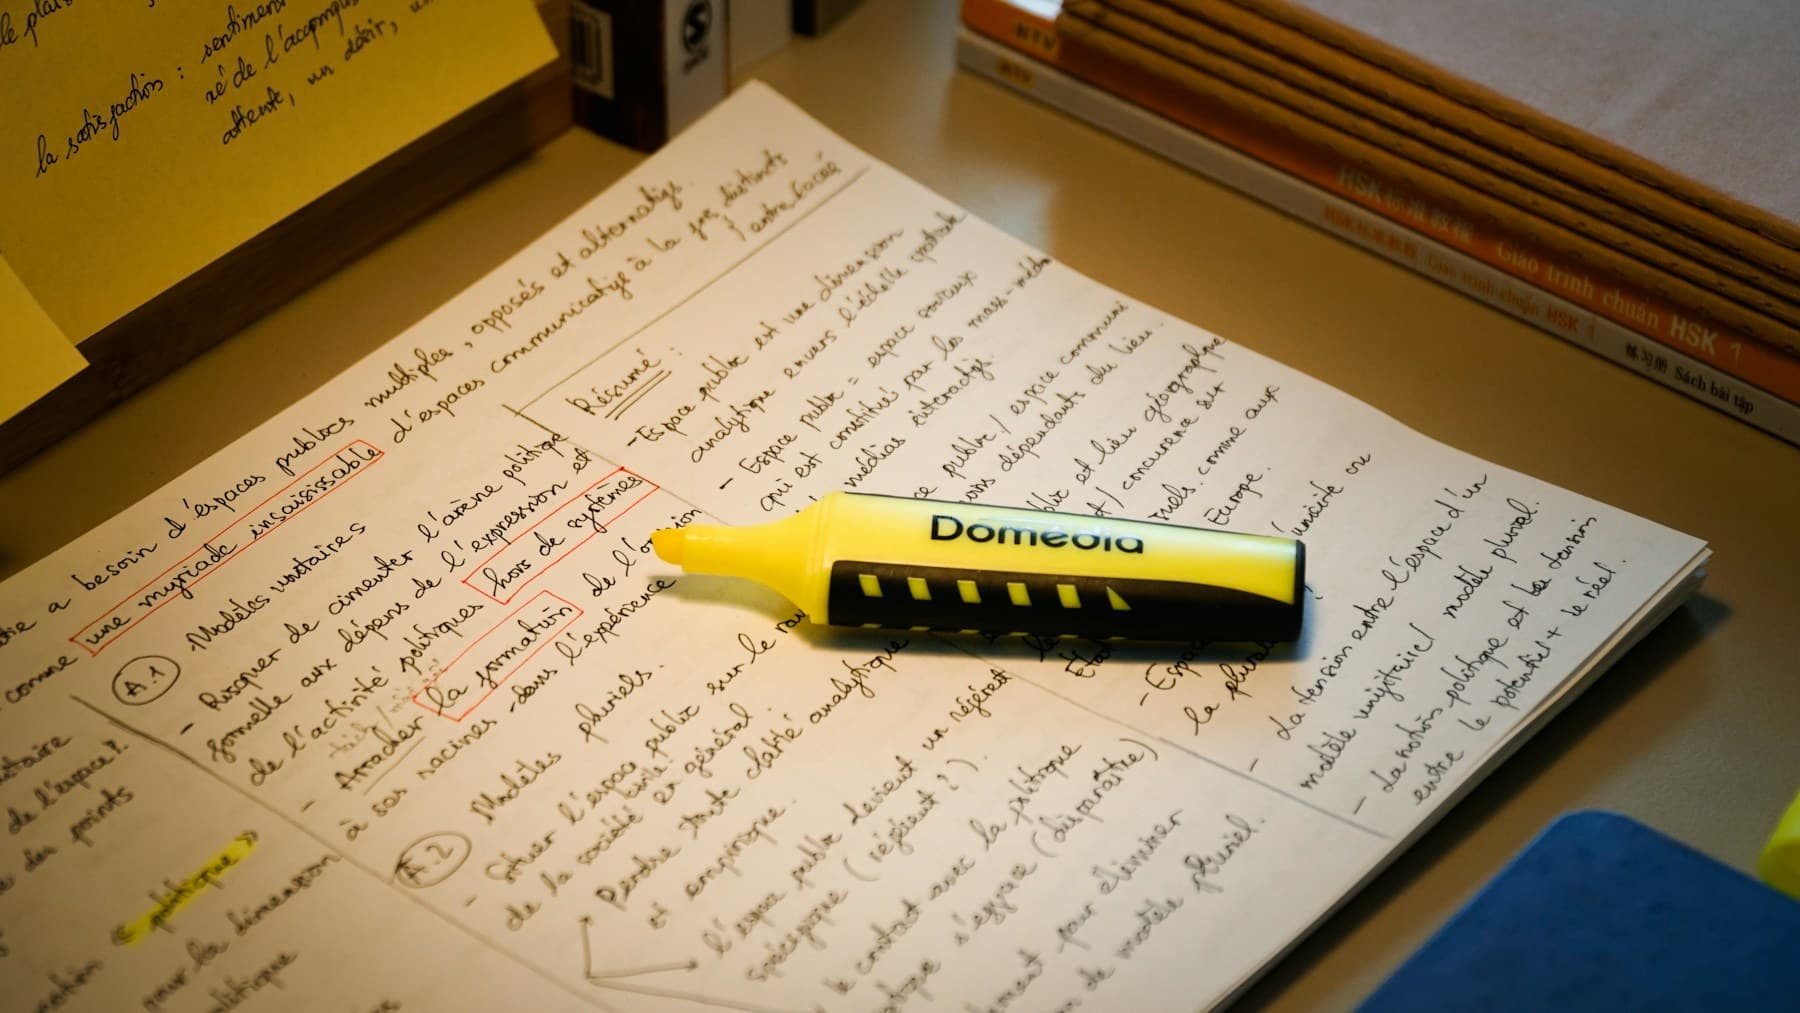 la satisfaction : sentiment
né de l'accomplis
attente, un désir, un
a besoin d'espaces publics multiples, opposés et alternatifs.
comme une myriade insaisissable d'espaces communicatifs à la fois distincts
/ entrelacés
A.1 Modèles unitaires
- Risquer de cimenter l'arène politique
formelle aux dépens de l'expression et
de l'activité politiques hors de systèmes
- Arracher la formation de l'
à ses racines dans l'expérience
A.2 Modèles pluriels.
- Situer l'espace public sur le
de la société civile! en général.
Perdre toute clarté analytique
et empirique.
l'espace public devient un référent
spécifique (référent ?).
le contact avec la politique
s'efface (disparaître)
pour éliminer
de modèle pluriel.
Résumé :
- Espace public est une dimension
analytique envers l'échelle spatiale
- Espace public = espace sociaux
qui est constitué par les mass-média
médias interactifs.
public / espace commun
dépendants du lieu.
et lieu géographique
/ concurrence sur
comme aux
Europe.
unitaire ou
- Espac
la plura
- La tension entre l'espace d'un
modèle unitaire / modèle plural.
- La notion politique et la tension
entre le potentiel + le réel.
de l'espace?
des points
« politique »
pour la dimension
Domédia
HSK标准教程 Giáo trình chuẩn HSK 1
Giáo trình chuẩn HSK 1
练习册 Sách bài tập